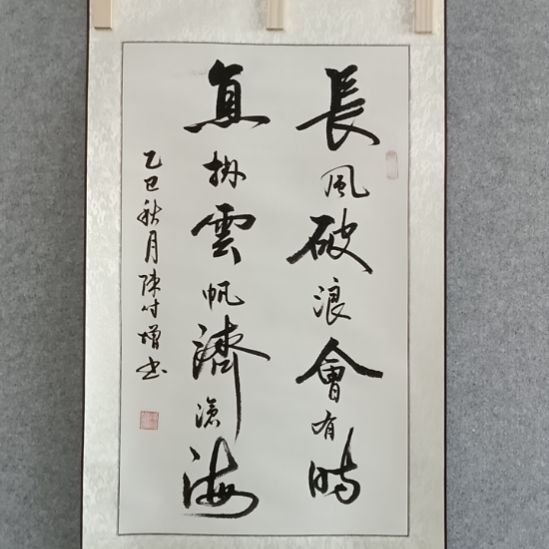 長風破浪會有時
直掛雲帆濟滄海
乙巳秋月陳付增书